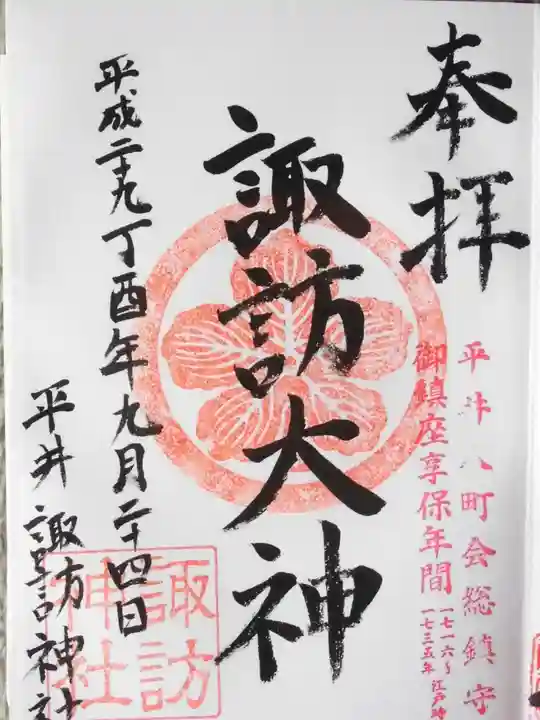 奉拝
平井八町会総鎮守
御鎮座享保年間
一七一六〜
一七三五年
江戸時
諏訪大神
平成二十九丁酉年九月二十四日
平井諏訪神社
諏訪
神社